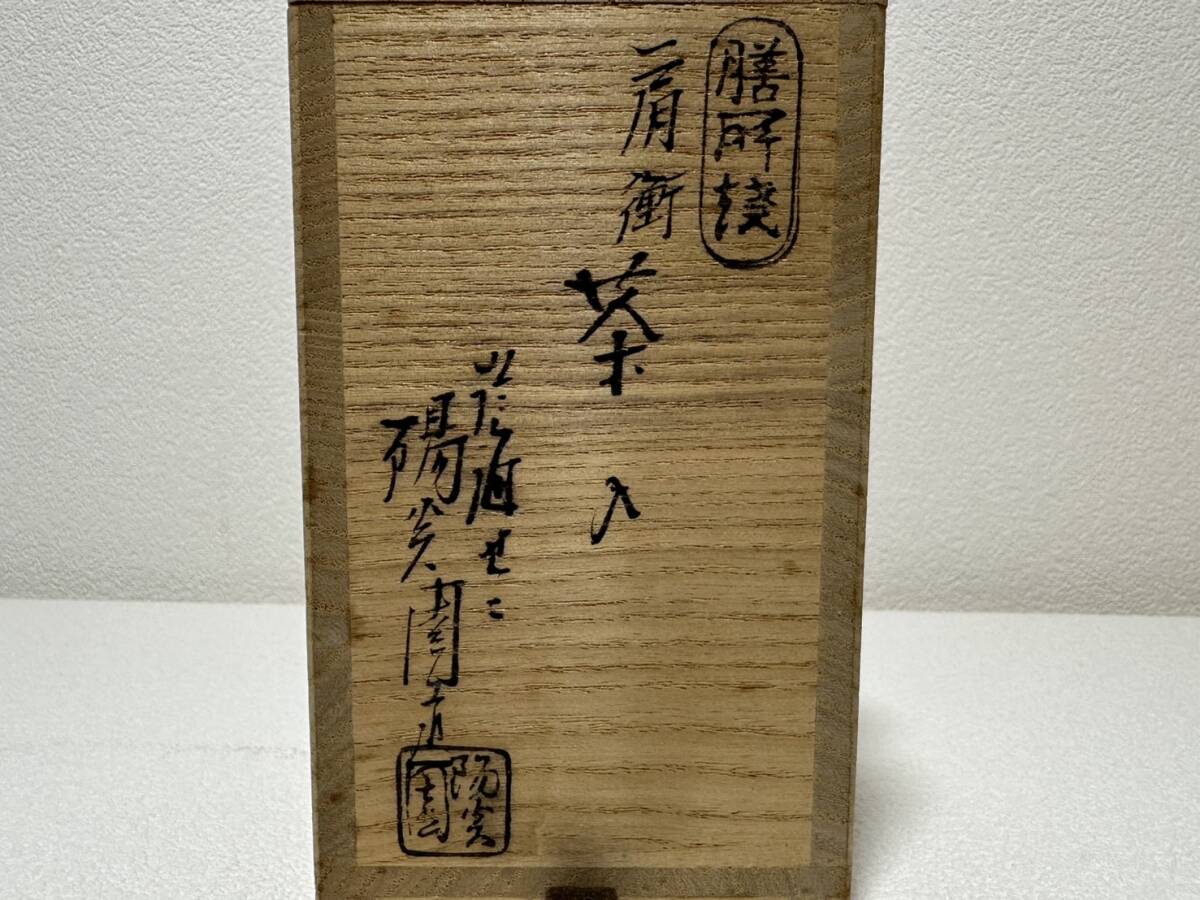 膳所焼
肩衝茶入
陽炎園造
陽炎
園